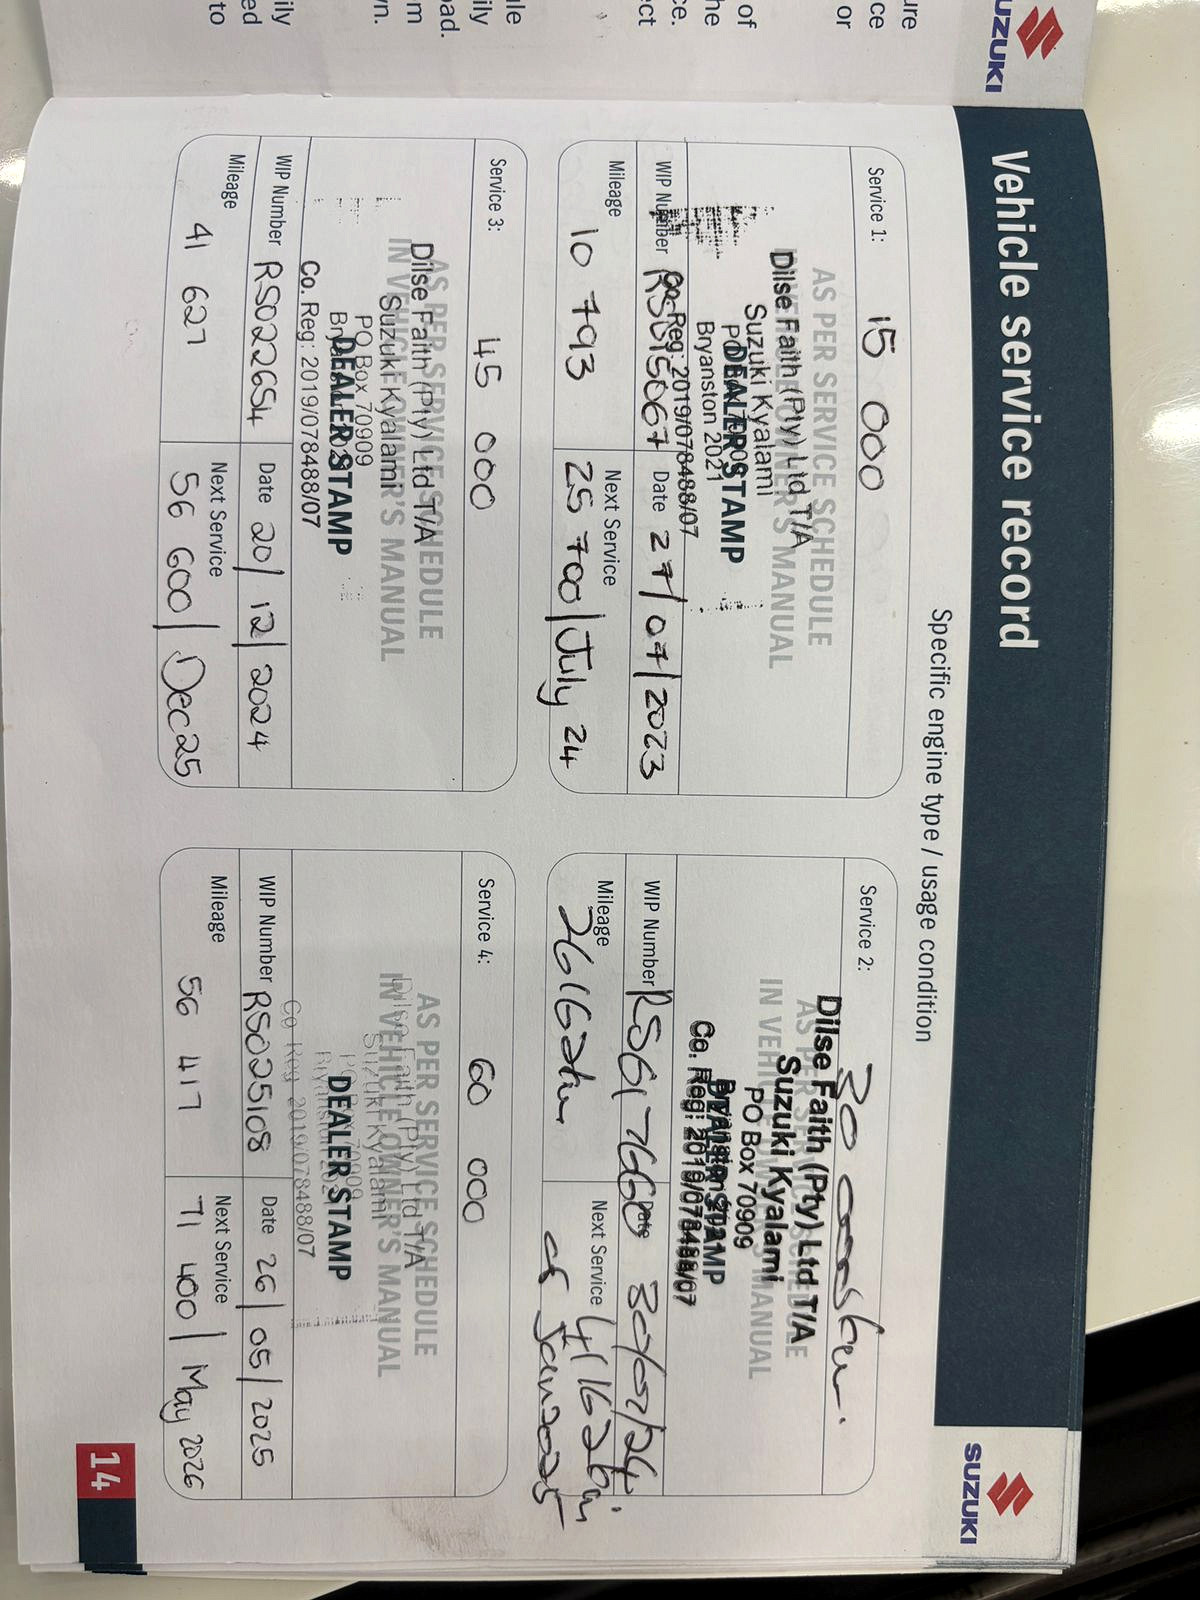 SUZUKI
Vehicle service record
SUZUKI
Specific engine type / usage condition
Service 1: 15 000
AS PER SERVICE SCHEDULE
IN VEHICLE OWNER'S MANUAL
DEALER STAMP
Dilse Faith (Pty) Ltd T/A
Suzuki Kyalami
PO Box 70909
Bryanston 2021
Co. Reg: 2019/078488/07
WIP Number RS015067
Date 27/07/2023
Mileage
10 793
Next Service
25 700 / July 24
Service 2: 30
AS PER SERVICE SCHEDULE
IN VEHICLE OWNER'S MANUAL
DEALER STAMP
Dilse Faith (Pty) Ltd T/A
Suzuki Kyalami
PO Box 70909
Co. Reg: 2019/078488/07
WIP Number
Date
Mileage
26162km
Next Service
41162km
Service 3: 45 000
AS PER SERVICE SCHEDULE
IN VEHICLE OWNER'S MANUAL
DEALER STAMP
Dilse Faith (Pty) Ltd T/A
Suzuki Kyalami
PO Box 70909
Co. Reg: 2019/078488/07
WIP Number RS022654
Date 20/12/2024
Mileage
41 627
Next Service
56 600 / Dec 25
Service 4: 60 000
AS PER SERVICE SCHEDULE
IN VEHICLE OWNER'S MANUAL
DEALER STAMP
Dilse Faith (Pty) Ltd T/A
Suzuki Kyalami
PO Box 70909
Co Reg 2019/078488/07
WIP Number RS025108
Date 26/05/2025
Mileage
56 417
Next Service
71 400 / May 2026
14